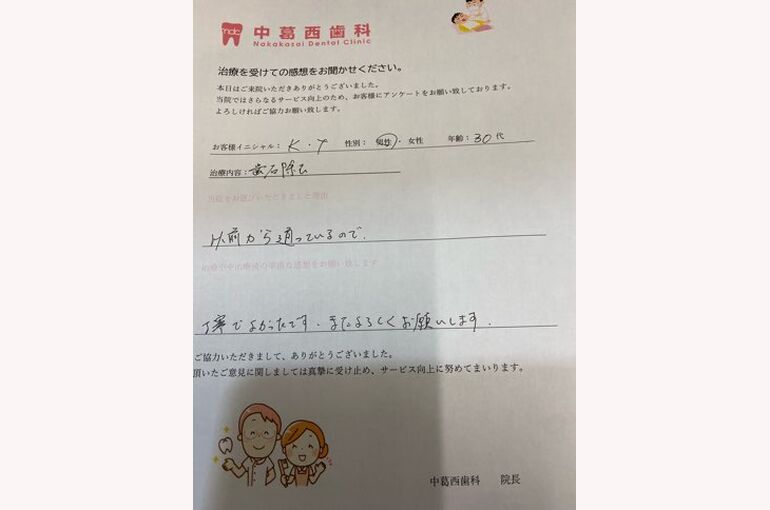 ndc
中葛西歯科
Nakakasai Dental Clinic
治療を受けての感想をお聞かせください。
本日はご来院いただきありがとうございました。
当院ではさらなるサービス向上のため、お客様にアンケートをお願い致しております。
よろしければご協力お願い致します。
お客様イニシャル: K・T 性別: 男性・女性 年齢: 30代
治療内容: 歯石除去
当院をお選びいただきました理由
以前から通っているので.
治療中や治療後の率直な感想をお願い致します
丁寧でよかったです. またよろしくお願いします.
ご協力いただきまして、ありがとうございました。
頂いたご意見に関しましては真摯に受け止め、サービス向上に努めてまいります。
中葛西歯科 院長